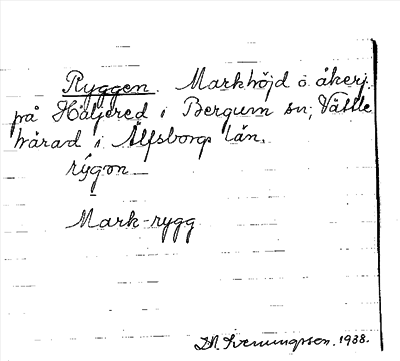 Ryggen. Markhöjd o. åkerj.
på Häljered i Bergum sn, Vättle
härad i Älfsborgs län.
rýgon
Mark-rygg
Svenungsson. 1938.